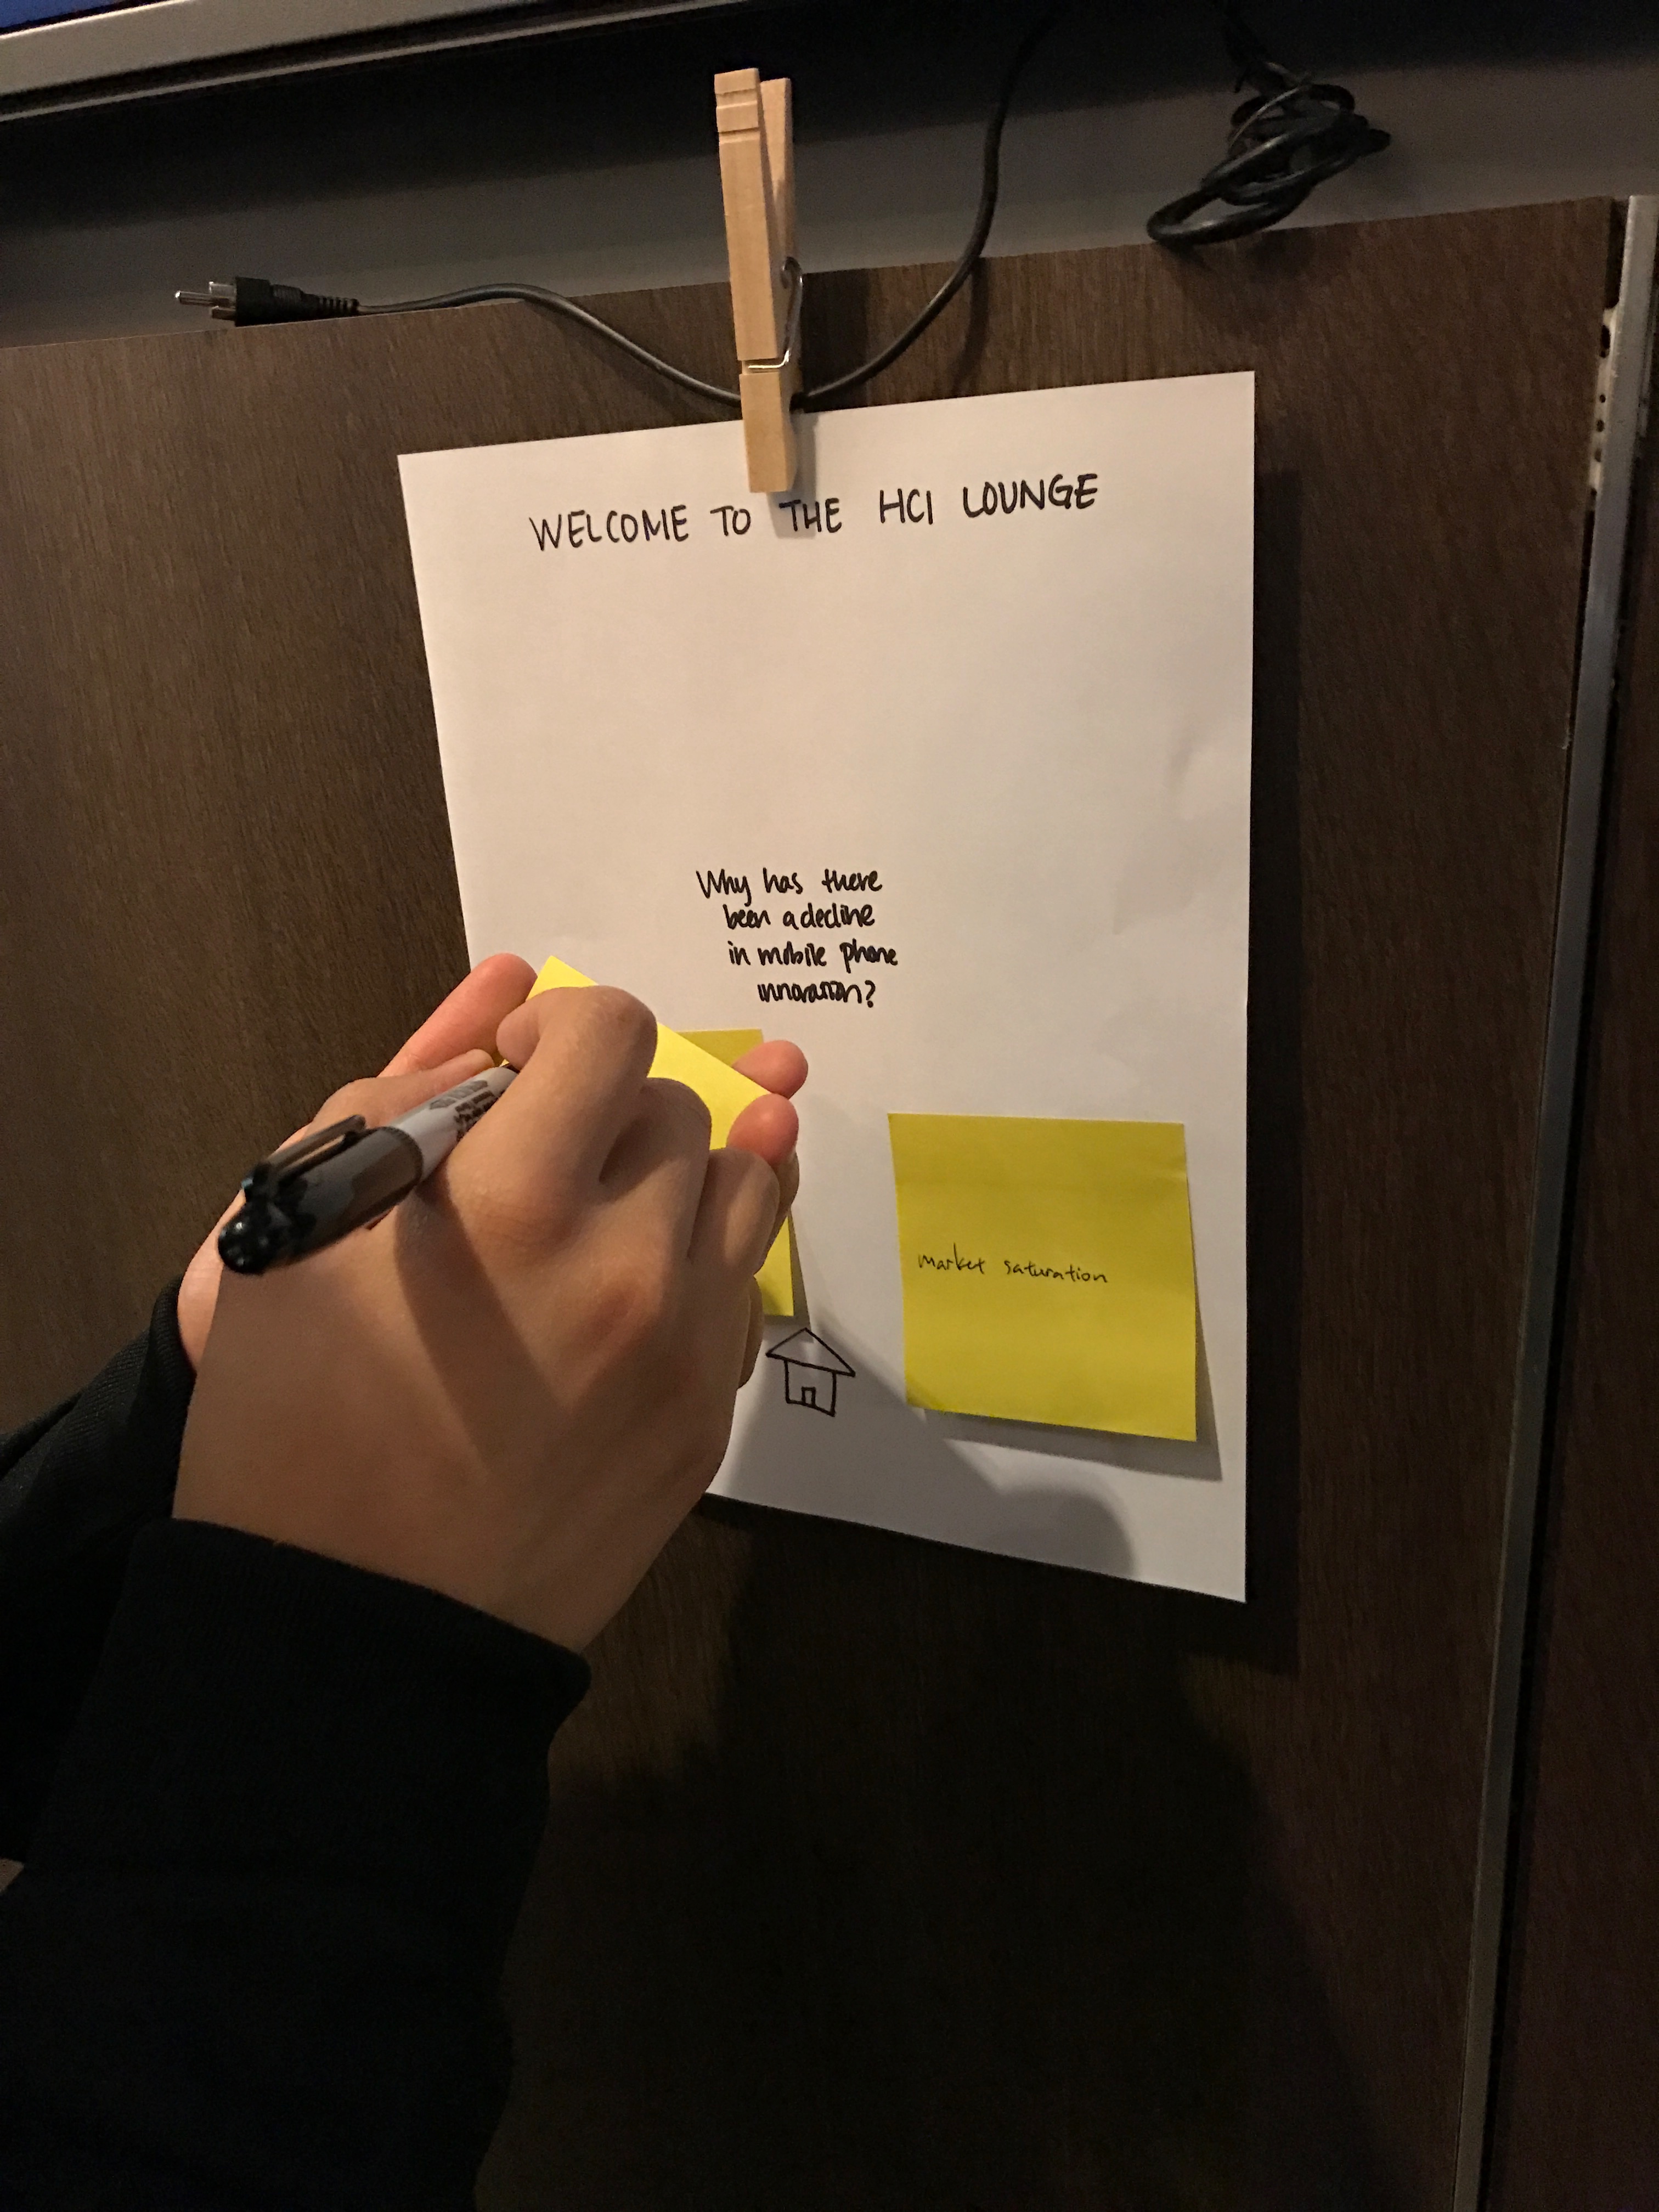 WELCOME TO THE HCI LOUNGE
Why has there
been a decline
in mobile phone
innovation?
market saturation